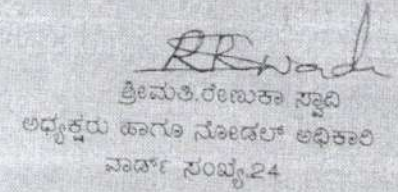 ಶ್ರೀಮತಿ.ರೇಣುಕಾ ಸ್ವಾದಿ
ಅಧ್ಯಕ್ಷರು ಹಾಗೂ ನೋಡಲ್ ಅಧಿಕಾರಿ
ವಾರ್ಡ್ ಸಂಖ್ಯೆ.24